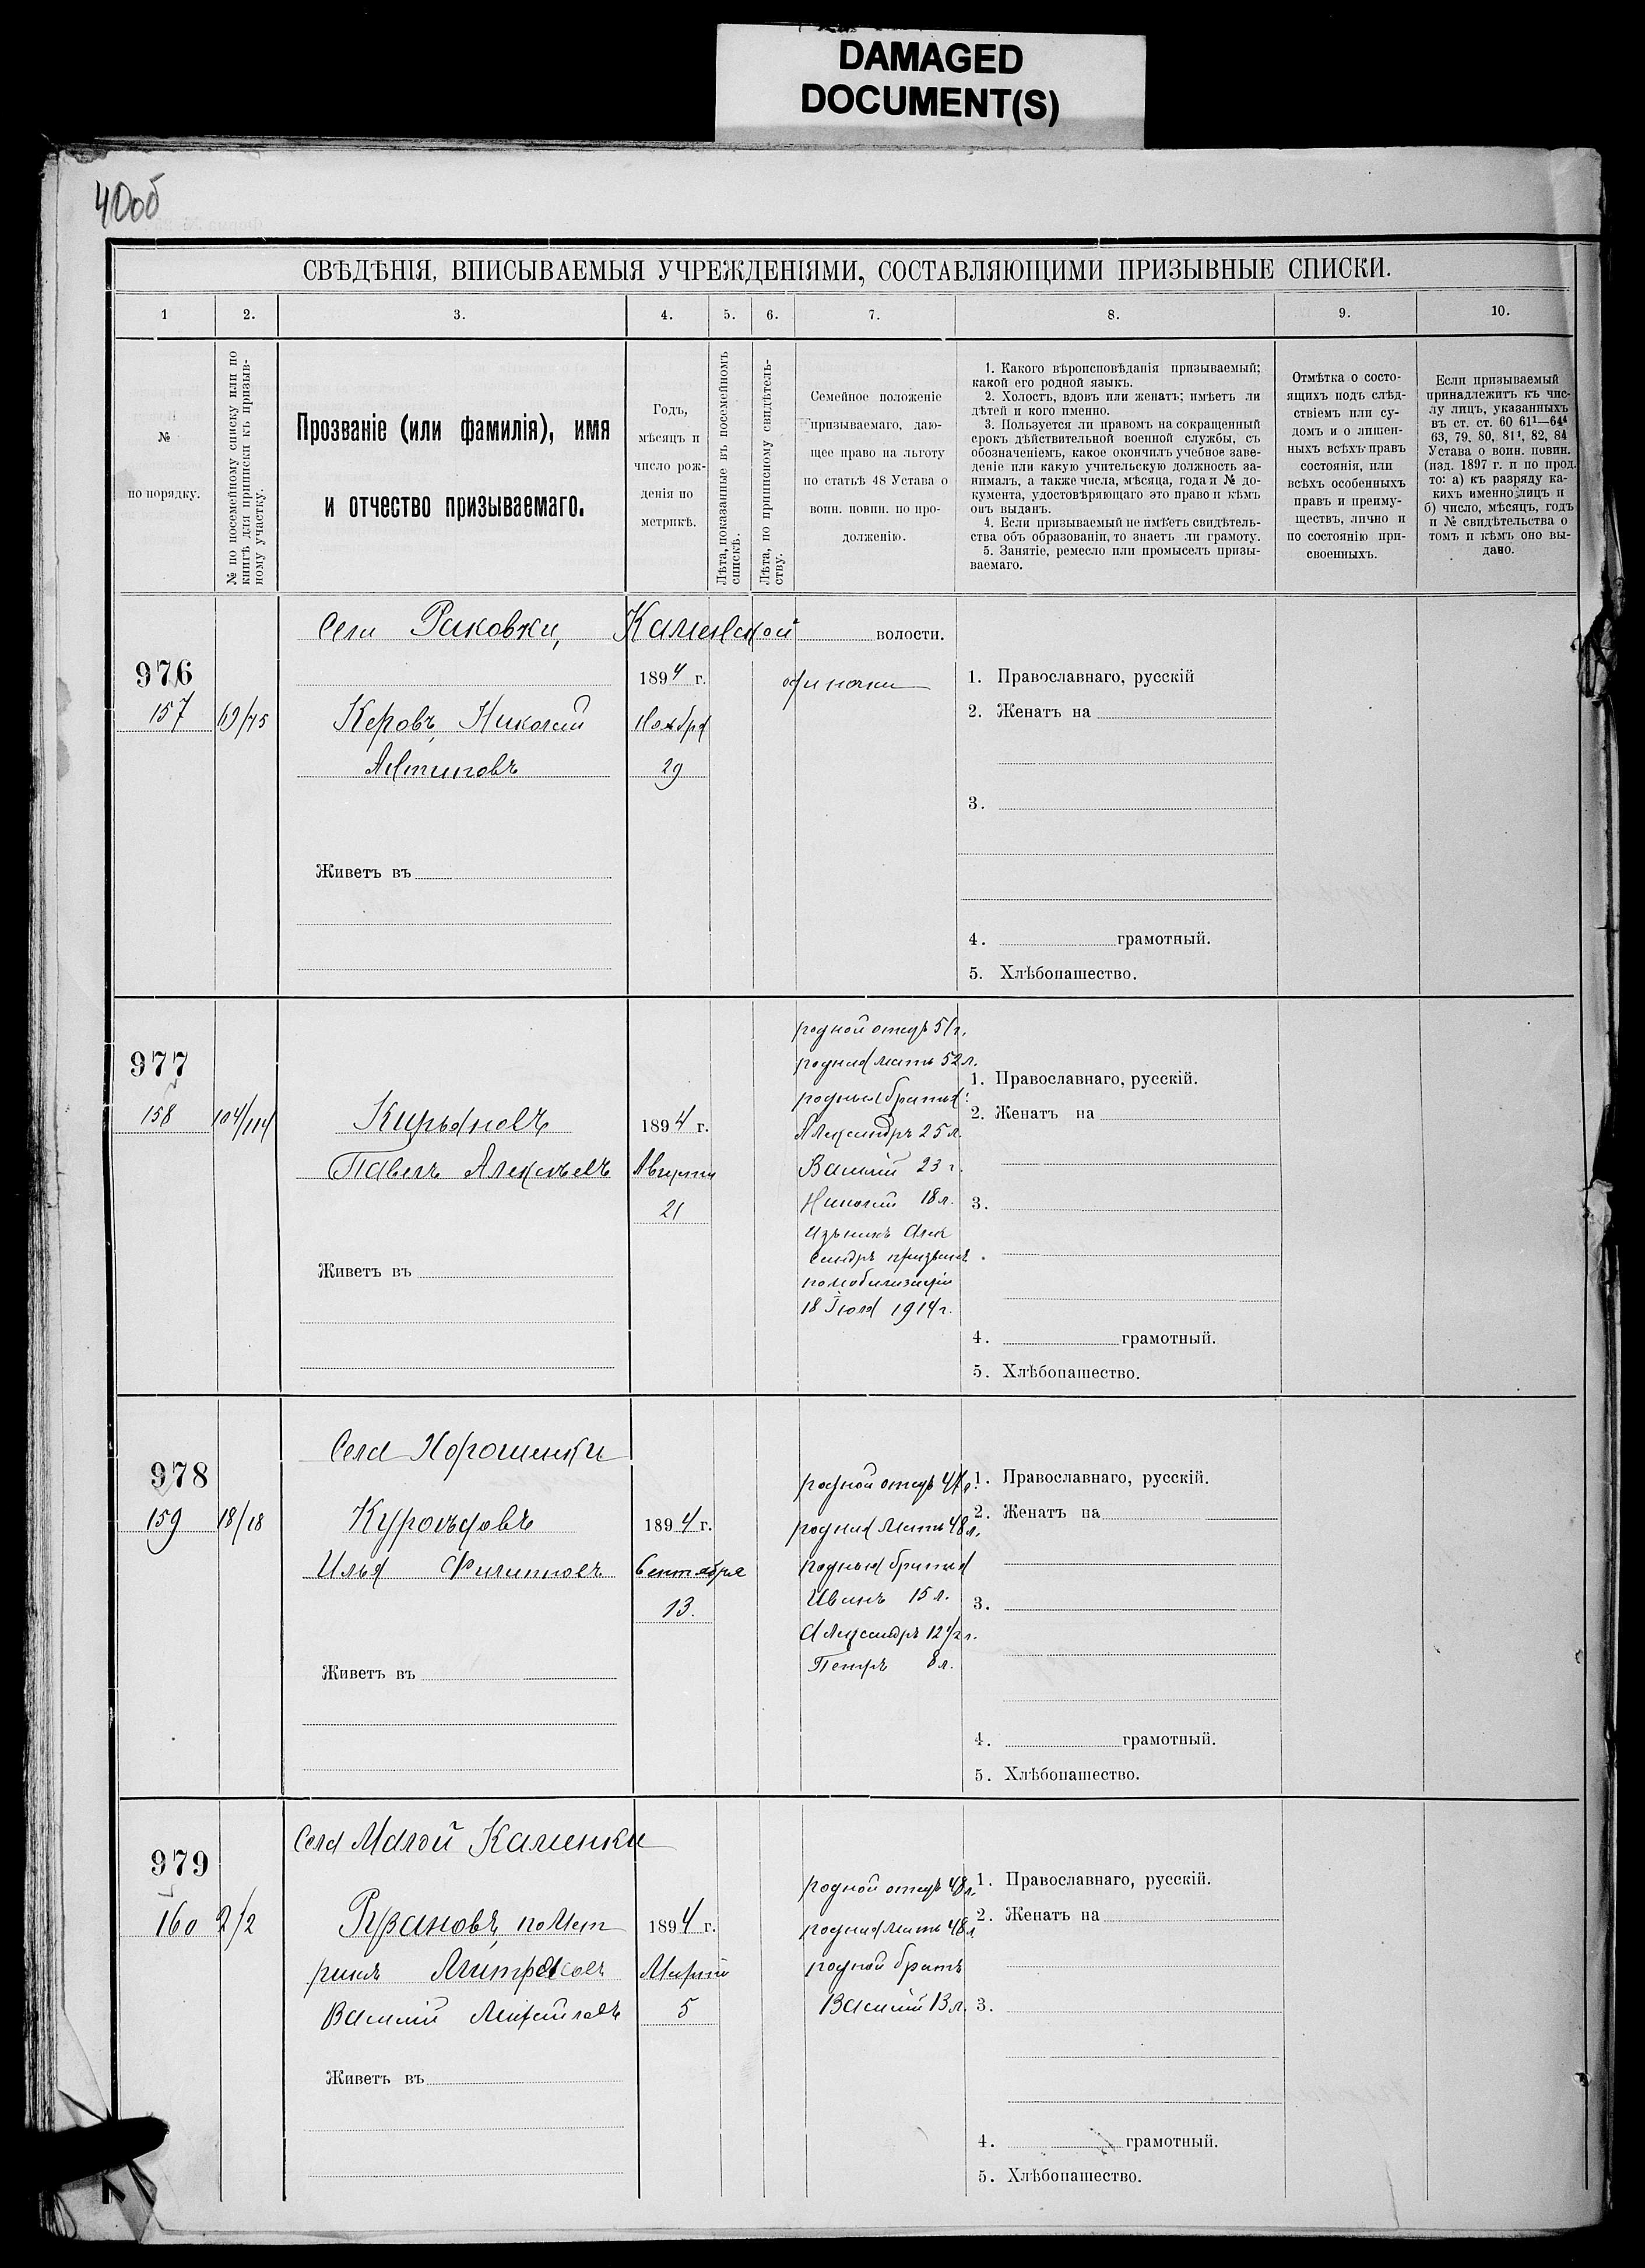 DAMAGED
DOCUMENT(S)
40об
СВѢДѢНІЯ, ВПИСЫВАЕМЫЯ УЧРЕЖДЕНІЯМИ, СОСТАВЛЯЮЩИМИ ПРИЗЫВНЫЕ СПИСКИ.
1 2. 3. 4. 5. 6. 7. 8. 9. 10.
№
по порядку.
№ по посемейному списку или по
книгѣ для приписки къ призыв-
ному участку.
Прозваніе (или фамилія), имя
и отчество призываемаго.
Годъ,
мѣсяцъ и
число рож-
денія по
метрикѣ.
Лѣта, показанные въ посемейномъ
спискѣ.
Лѣта, по приписному свидѣтель-
ству.
Семейное положеніе
призываемаго, даю-
щее право на льготу
по статьѣ 48 Устава о
воин. повин. по про-
долженію.
1. Какого вѣроисповѣданія призываемый;
какой его родной языкъ.
2. Холостъ, вдовъ или женатъ; имѣетъ ли
дѣтей и кого именно.
3. Пользуется ли правомъ на сокращенный
срокъ дѣйствительной военной службы, съ
обозначеніемъ, какое окончилъ учебное заве-
деніе или какую учительскую должность за-
нималъ, а также числа, мѣсяца, года и № до-
кумента, удостовѣряющаго это право и кѣмъ
онъ выданъ.
4. Если призываемый не имѣетъ свидѣтель-
ства объ образованіи, то знаетъ ли грамоту.
5. Занятіе, ремесло или промыселъ призы-
ваемаго.
Отмѣтка о состо-
ящихъ подъ слѣд-
ствіемъ или су-
домъ и о лишен-
ныхъ всѣхъ правъ
состоянія, или
всѣхъ особенныхъ
правъ и преиму-
ществъ, лично и
по состоянію при-
своенныхъ.
Если призываемый
принадлежитъ къ чис-
лу лицъ, указанныхъ
въ ст. ст. 60 61¹—64⁴
63, 79, 80, 81¹, 82, 84
Устава о воин. повин.
(изд. 1897 г. и по прод.
то: а) къ разряду ка-
кихъ именно лицъ и
б) число, мѣсяцъ, годъ
и № свидѣтельства о
томъ и кѣмъ оно вы-
дано.
Села Раковки, Каменской волости.
976
157 69/75
Керовъ, Николай
1894 г.
Ноября
29
одиночка
1. Православнаго, русскій
2. Женатъ на
3.
Живетъ въ
4. грамотный.
5. Хлѣбопашество.
977
158 104/114
Кирьяновъ
Павелъ Алексѣевъ
1894 г.
Августа
21
родной отецъ 51 г.
родная мать 52 л.
родные братья:
Александръ 25 л.
Василій 23 г.
Николай 18 л.
Изъ нихъ Алек
сандръ призванъ
по мобилизаціи
18 Іюля 1914 г.
1. Православнаго, русскій.
2. Женатъ на
3.
Живетъ въ
4. грамотный.
5. Хлѣбопашество.
Села Хорошенки
978
159 18/18
Куроѣдовъ
Илья Филипповъ
1894 г.
Сентября
13.
родной отецъ 47 л.
родная мать 48 л.
родные братья
Иванъ 15 л.
Александръ 12 1/2 г.
Петръ 8 л.
1. Православнаго, русскій.
2. Женатъ на
3.
Живетъ въ
4. грамотный.
5. Хлѣбопашество.
Села Малой Каменки
979
160 2/2
по мет
рикѣ
Василій Михайловъ
1894 г.
Марта
5
родной отецъ 48 л.
родная мать 48 л.
родной братъ
Василій 13 л.
1. Православнаго, русскій.
2. Женатъ на
3.
Живетъ въ
4. грамотный.
5. Хлѣбопашество.